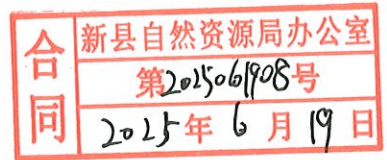 合同
新县自然资源局办公室
第2025061908号
2025年6月19日